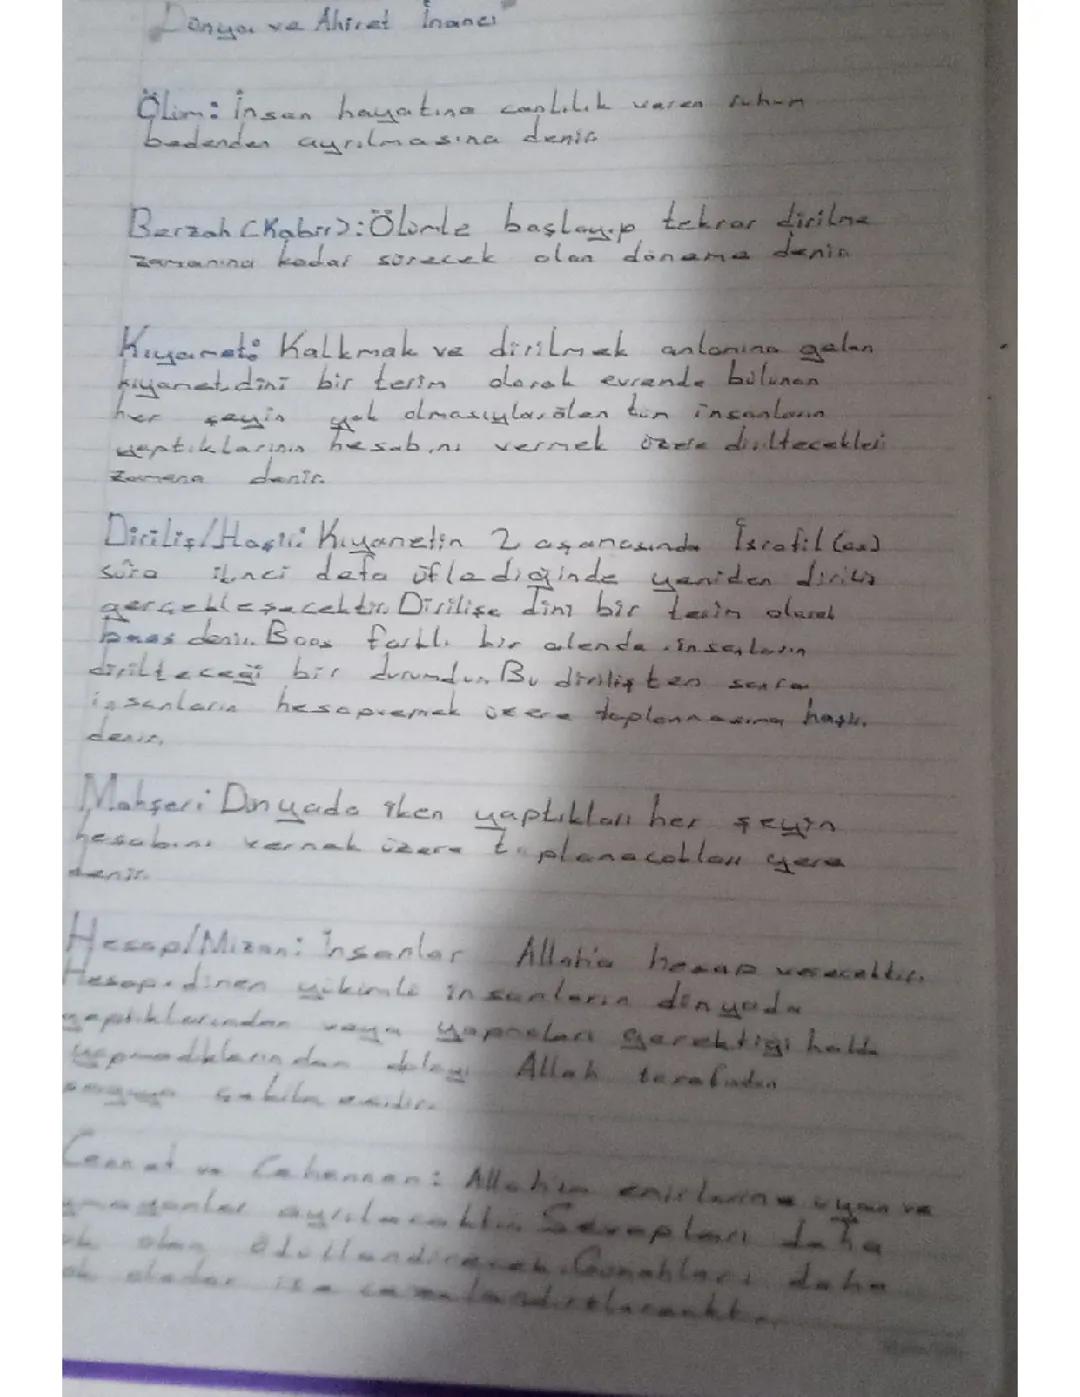 Dünya ve Ahiret İnancı
Ölüm: İnsan hayatına canlılık veren ruhun
bedenden ayrılmasına denir.
Berzah (Kabir): Ölümle başlayıp tekrar dirilme
zamanına kadar sürecek olan döneme denir.
Kıyamet: Kalkmak ve dirilmek anlamına gelen
kıyamet, dini bir terim olarak evrende bulunan
her şeyin yok olmasıyla, ölen tüm insanların
yaptıklarının hesabını vermek üzere diriltecekleri
zamana denir.
Diriliş/Haşir: Kıyametin 2 aşamasında İsrafil (as)
sûra ikinci defa üflediğinde yeniden diriliş
gerçekleşecektir. Dirilişe dini bir terim olarak
baas denir. Baas farklı bir alemde insanların
dirilteceği bir durumdur. Bu dirilişten sonra
insanların hesap vermek üzere toplanmasına haşir
denir.
Mahşer: Dünyada iken yaptıkları her şeyin
hesabını vermek üzere toplanacakları yere
denir.
Hesap/Mizan: İnsanlar Allah'a hesap verecektir.
Hesap, dinen yükümlü insanların dünyada
yaptıklarından veya yapmaları gerektiği halde
yapmadıklarından dolayı Allah tarafından
sorguya çekilmesidir.
Cennet ve Cehennem: Allah'ın emirlerine uyan ve
uymayanlar ayrılacaktır. Sevapları daha
olan ödüllendirilecek. Günahları daha
olanlar ise cezalandırılacaktır.